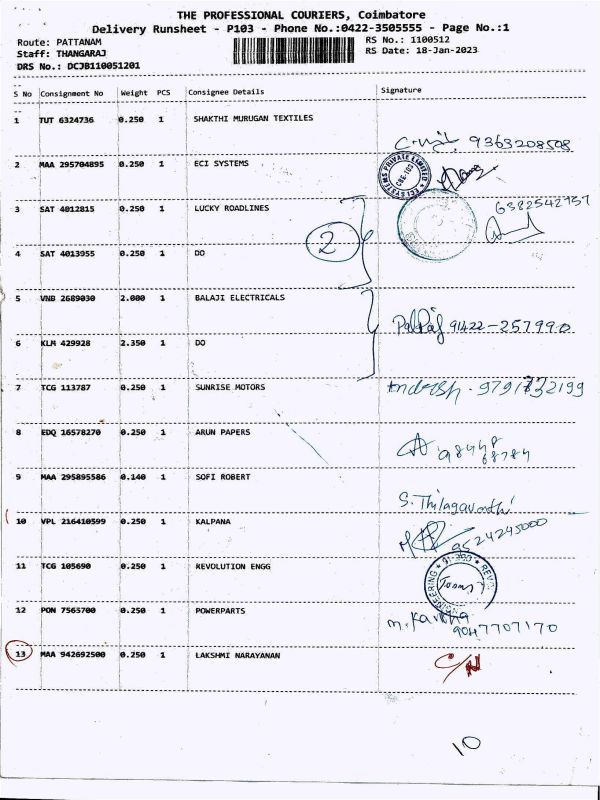 THE PROFESSIONAL COURIERS, Coimbatore
Delivery Runsheet - P103 - Phone No.:0422-3505555 - Page No.:1
Route: PATTANAM RS No.: 1100512
Staff: THANGARAJ RS Date: 18-Jan-2023
DRS No.: DCJB110051201
S No Consignment No Weight PCS Consignee Details Signature
1 TUT 6324736 0.250 1 SHAKTHI MURUGAN TEXTILES
9363208508
2 MAA 295704895 0.250 1 ECI SYSTEMS
ECI SYSTEMS PRIVATE LIMITED
CBE-103
3 SAT 4012815 0.250 1 LUCKY ROADLINES 6382542757
2
4 SAT 4013955 0.250 1 DO
5 VNB 2689030 2.000 1 BALAJI ELECTRICALS
91422-257990
6 KLM 429928 2.350 1 DO
7 TCG 113787 0.250 1 SUNRISE MOTORS
8 EDQ 16578270 0.250 1 ARUN PAPERS
98448
68784
9 MAA 295895586 0.140 1 SOFI ROBERT
S. Thilagavathi
10 VPL 216410599 0.250 1 KALPANA
9524245000
11 TCG 105690 0.250 1 REVOLUTION ENGG
12 PON 7565700 0.250 1 POWERPARTS
9047707170
13 MAA 942692500 0.250 1 LAKSHMI NARAYANAN
10